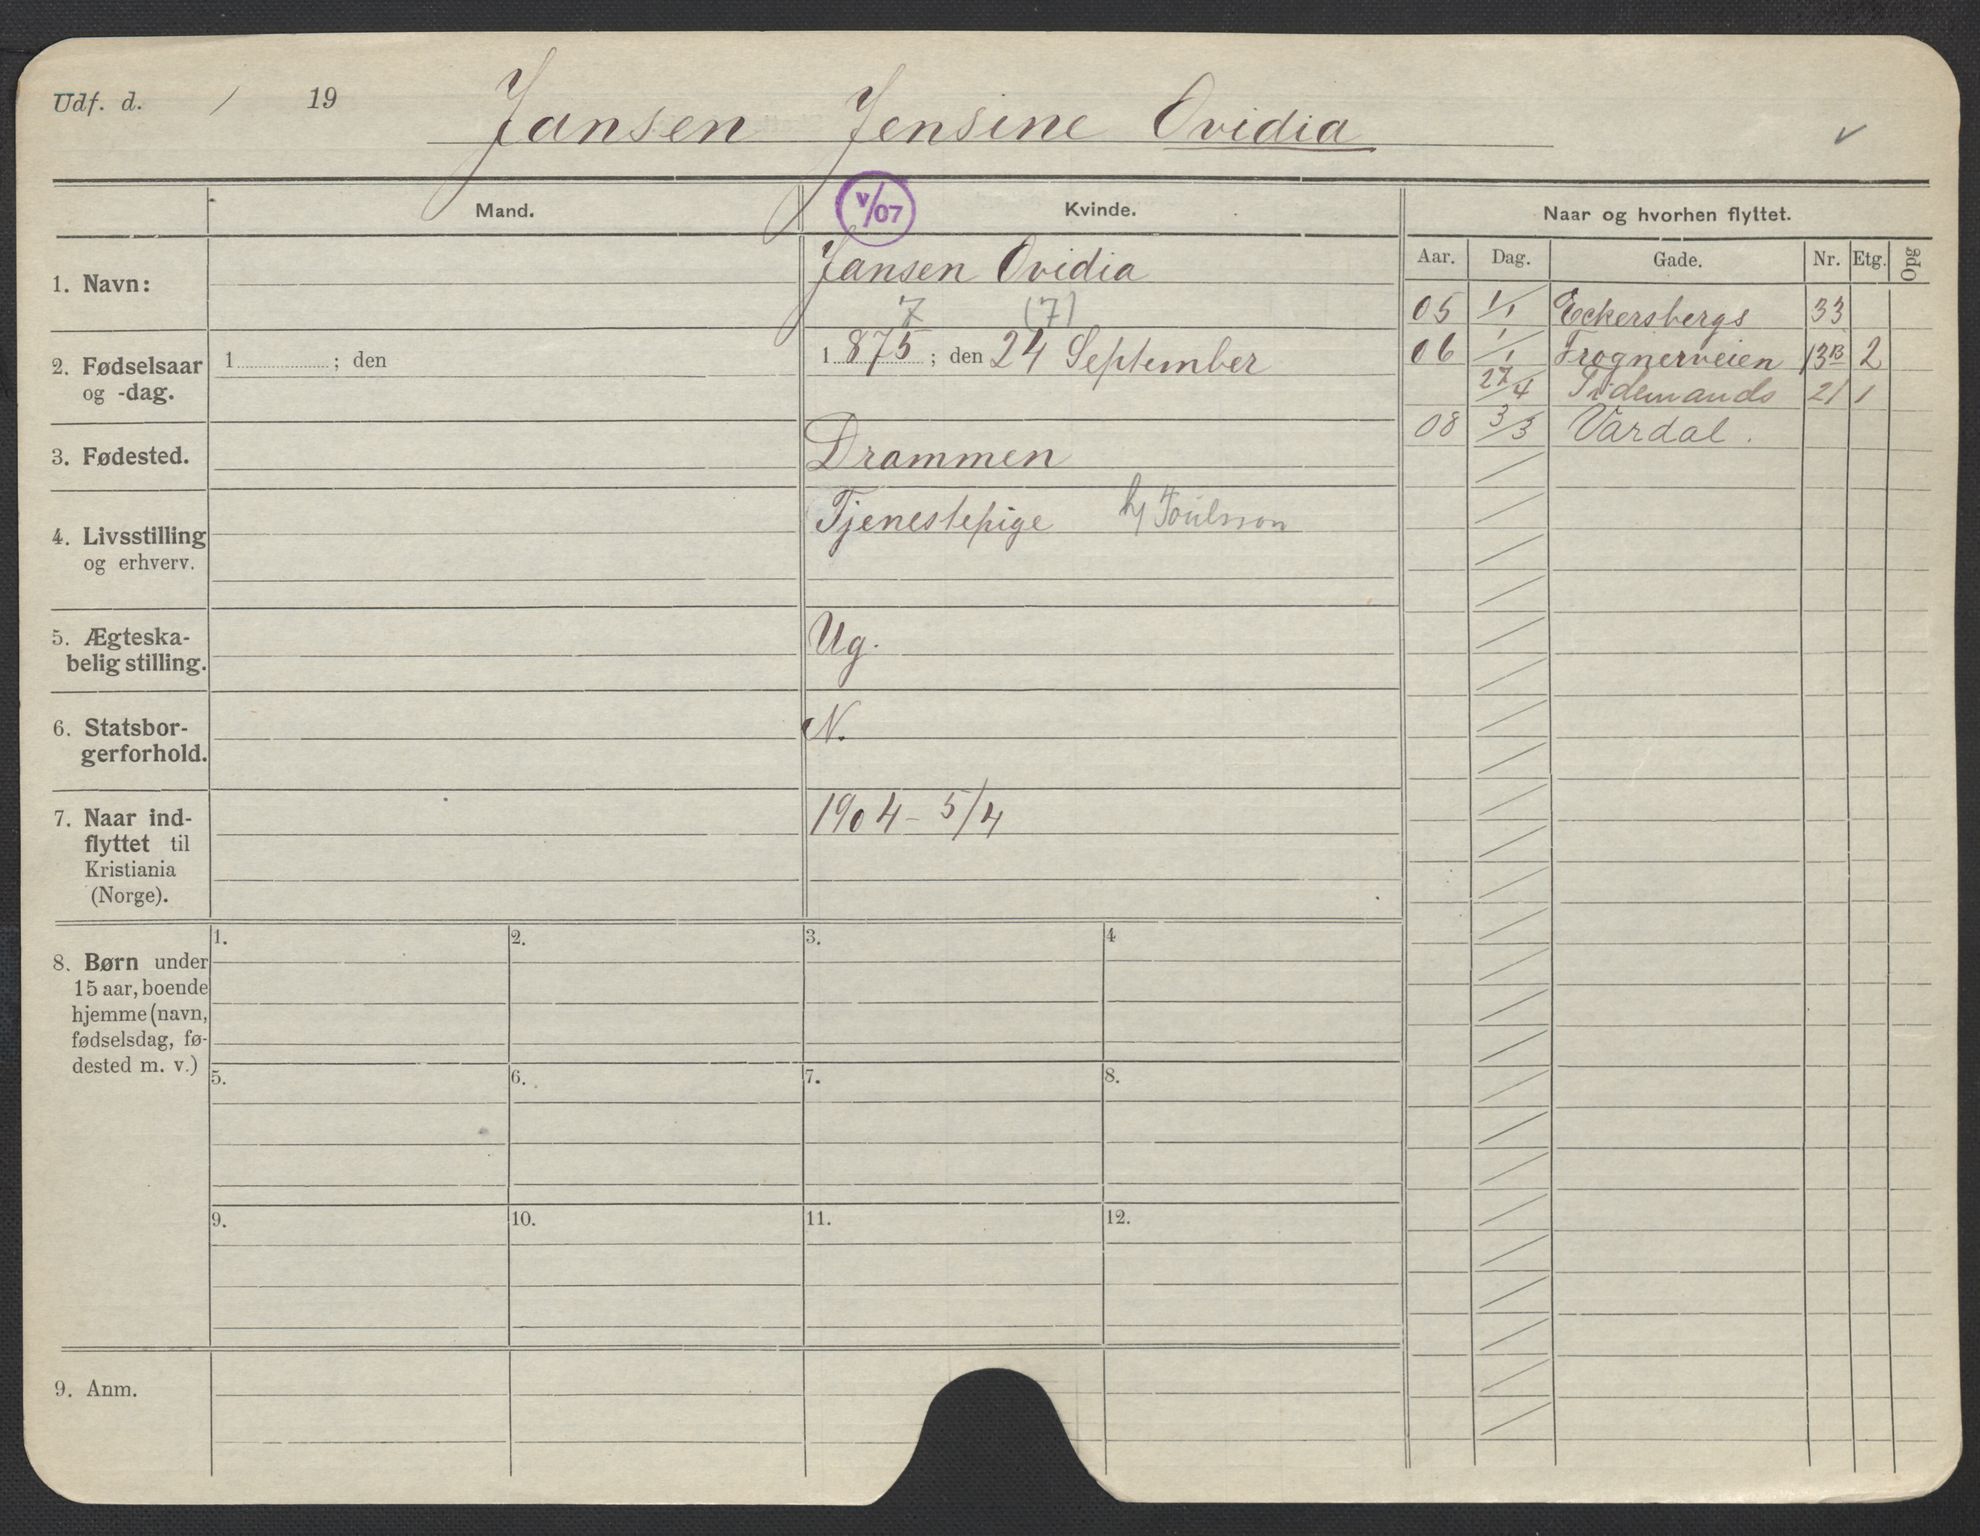 Udf. d. / 19 Jansen Jensine Ovidia
Mand. V/07 Kvinde. Naar og hvorhen flyttet.
Aar. Dag. Gade. Nr. Etg. Opg
1. Navn: Jansen Ovidia
7 (7)
2. Fødselsaar og -dag. 1 ; den 1 875 ; den 24 September
3. Fødested. Drammen
4. Livsstilling og erhverv. Tjenestepige
5. Ægteska-
belig stilling. Ug.
6. Statsbor-
gerforhold. N.
7. Naar ind-
flyttet til
Kristiania
(Norge). 1904 - 5/4
05 1/1 Eckersbergs 33
06 1/1 Frognerveien 13B 2
27/4 Tidemands 21 1
08 3/3 Vardal.
8. Børn under
15 aar, boende
hjemme (navn,
fødselsdag, fø-
dested m. v.)
1. 2. 3. 4
5. 6. 7. 8.
9. 10. 11. 12.
9. Anm.